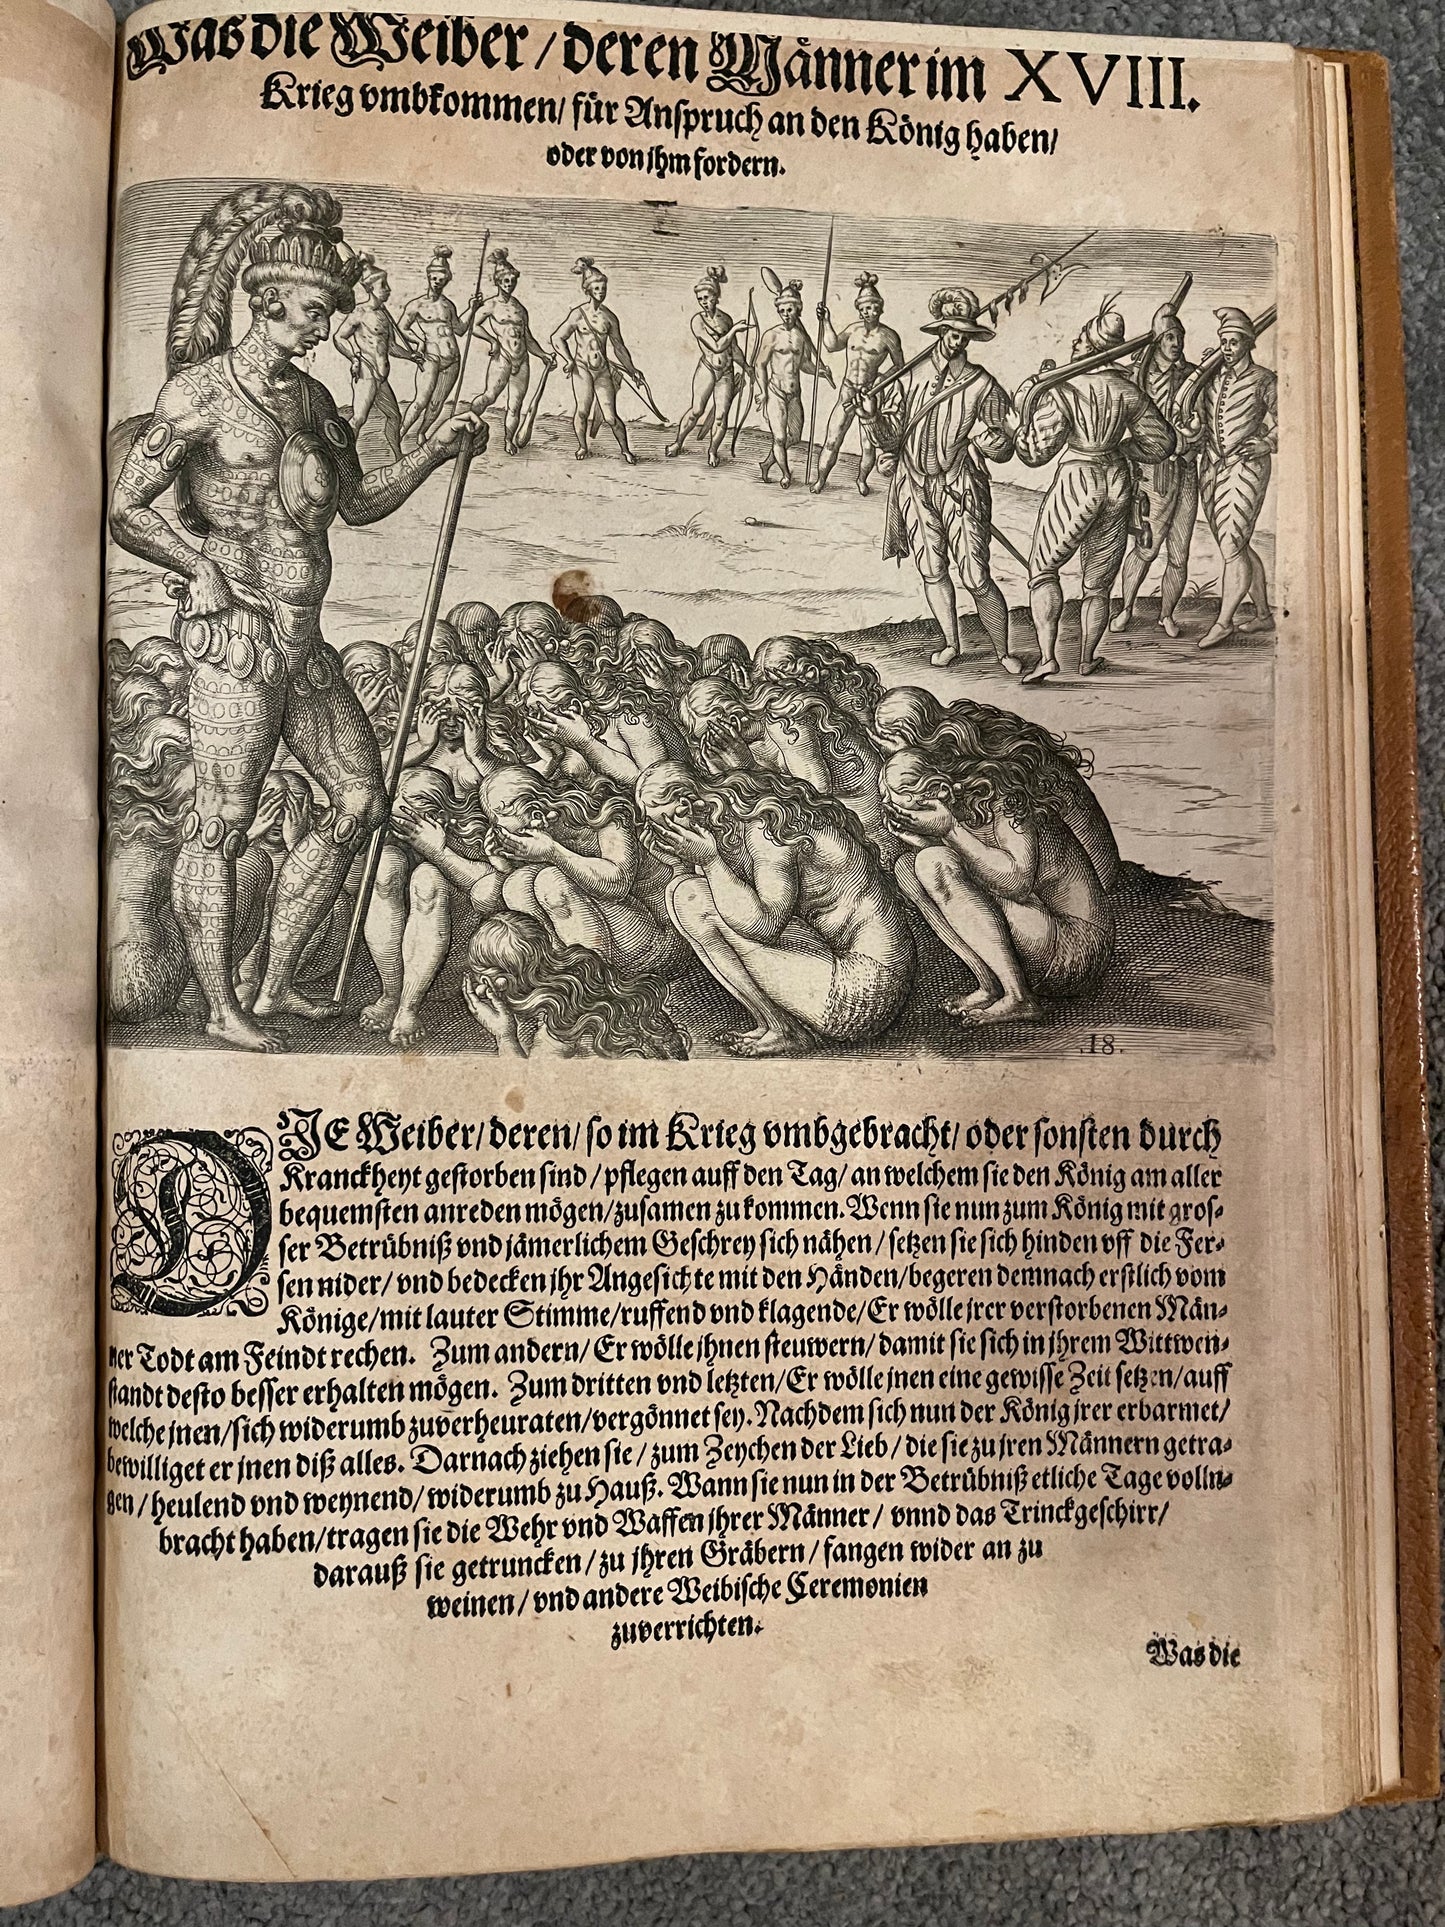 Was die Weiber / deren Männer im XVIII.
Krieg vmbkommen / für Anspruch an den König haben /
oder von jhm fordern.
.18.
DJE Weiber / deren / so im Krieg vmbgebracht / oder sonsten durch
Kranckheyt gestorben sind / pflegen auff den Tag / an welchem sie den König am aller
bequemsten anreden mögen / zusamen zu kommen. Wenn sie nun zum König mit gros-
ser Betrübniß vnd jämerlichem Geschrey sich nähen / setzen sie sich hinden vff die Fer-
sen nider / vnd bedecken jhr Angesichte mit den Händen / begeren demnach erstlich vom
Könige / mit lauter Stimme / ruffend vnd klagende / Er wölle jrer verstorbenen Män-
ner Todt am Feindt rechen. Zum andern / Er wölle jhnen steuwern / damit sie sich in jhrem Wittwen-
standt desto besser erhalten mögen. Zum dritten vnd letzten / Er wölle jnen eine gewisse Zeit setzen / auff
welche jnen / sich widerumb zuverheuraten / vergönnet sey. Nachdem sich nun der König jrer erbarmet /
bewilliget er jnen diß alles. Darnach ziehen sie / zum Zeychen der Lieb / die sie zu jren Männern getra-
gen / heulend vnd weynend / widerumb zu Hauß. Wann sie nun in der Betrübniß etliche Tage volln-
bracht haben / tragen sie die Wehr vnd Waffen jhrer Männer / vnnd das Trinckgeschirr /
darauß sie getruncken / zu jhren Gräbern / fangen wider an zu
weinen / vnd andere Weibische Ceremonien
zuverrichten.
Was die